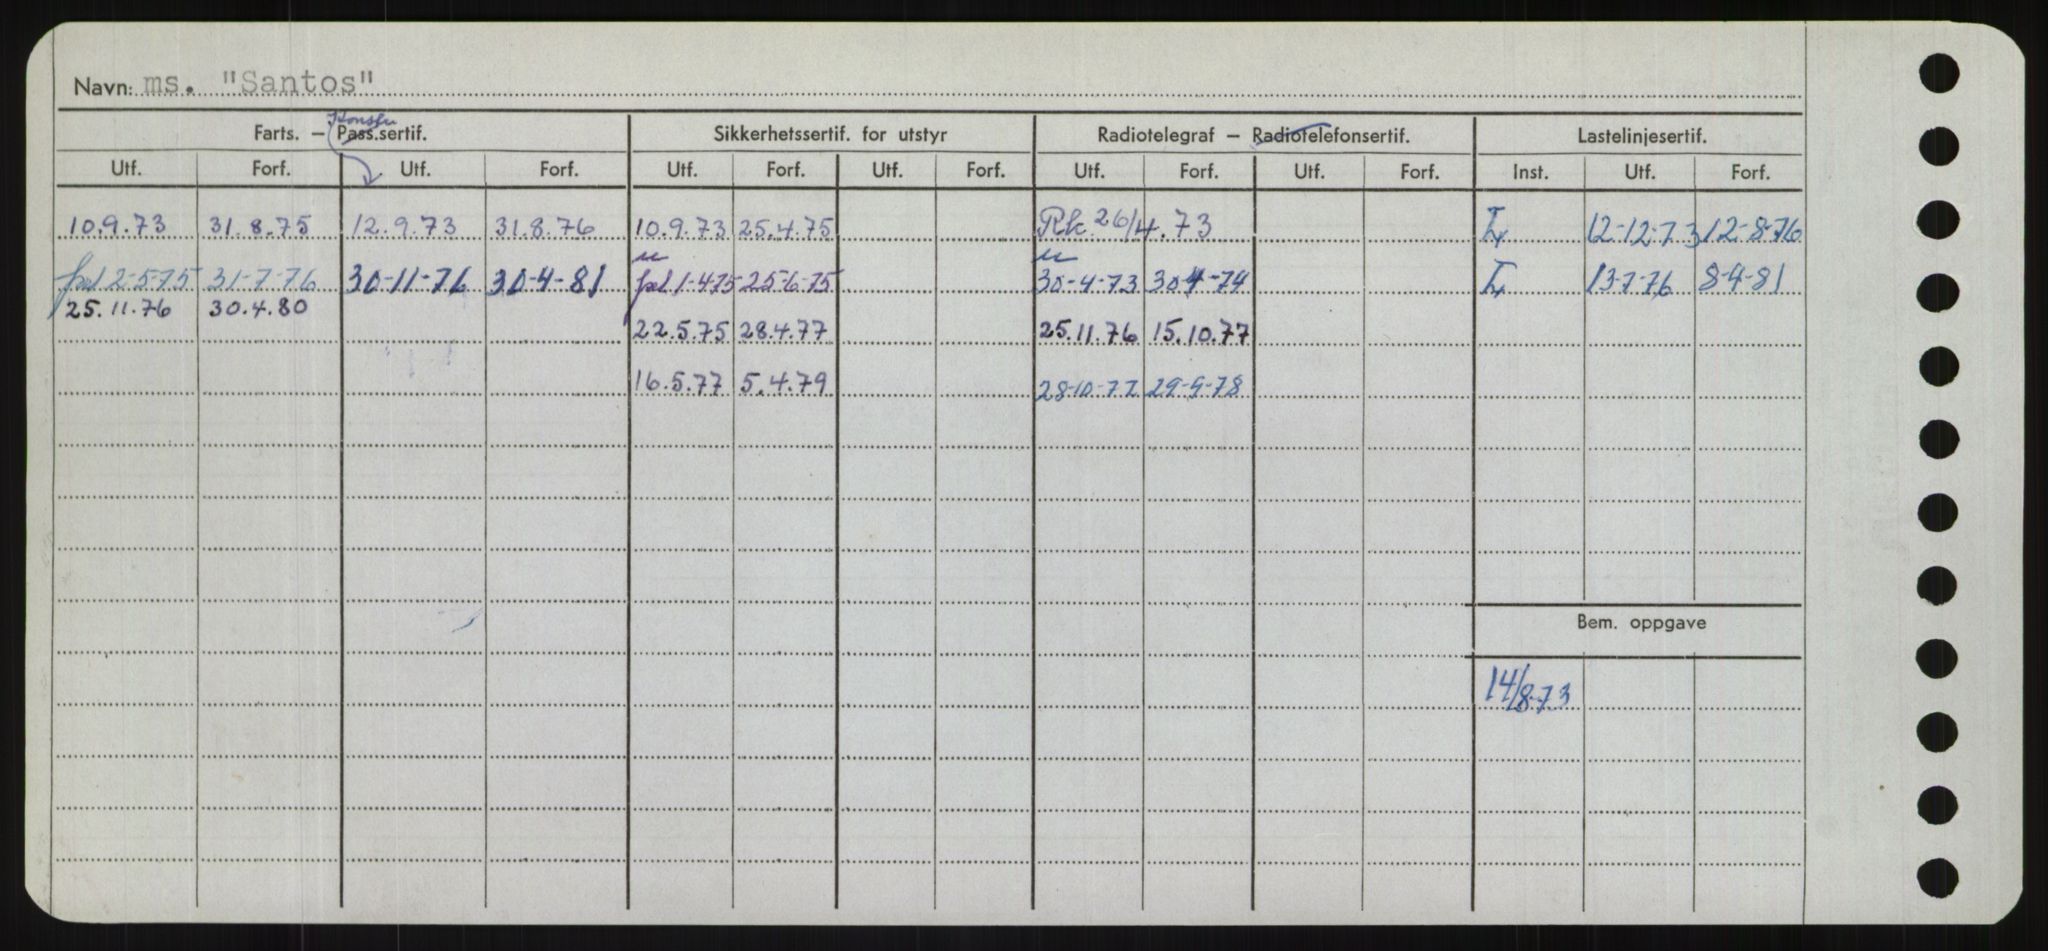 Navn: ms. "Santos"
Farts. – Pass.sertif. Sikkerhetssertif. for utstyr Radiotelegraf – Radiotelefonsertif. Lastelinjesertif.
Utf. Forf. Utf. Forf. Utf. Forf. Utf. Forf. Utf. Forf. Utf. Forf. Inst. Utf. Forf.
10.9.73 31.8.75 12.9.73 31.8.76 10.9.73 25.4.75 Rk. 26/4.73 12-12-73 12-8-76
2-5-75 31-7-76 30-11-76 30-4-81 1-4-75 25-6-75 30-4-73 30-4-74 13-7-76 8-4-81
25.11.76 30.4.80
22.5.75 28.4.77 25.11.76 15.10.77
16.5.77 5.4.79 28-10-77 29-9-78
Bem. oppgave
14/8.73